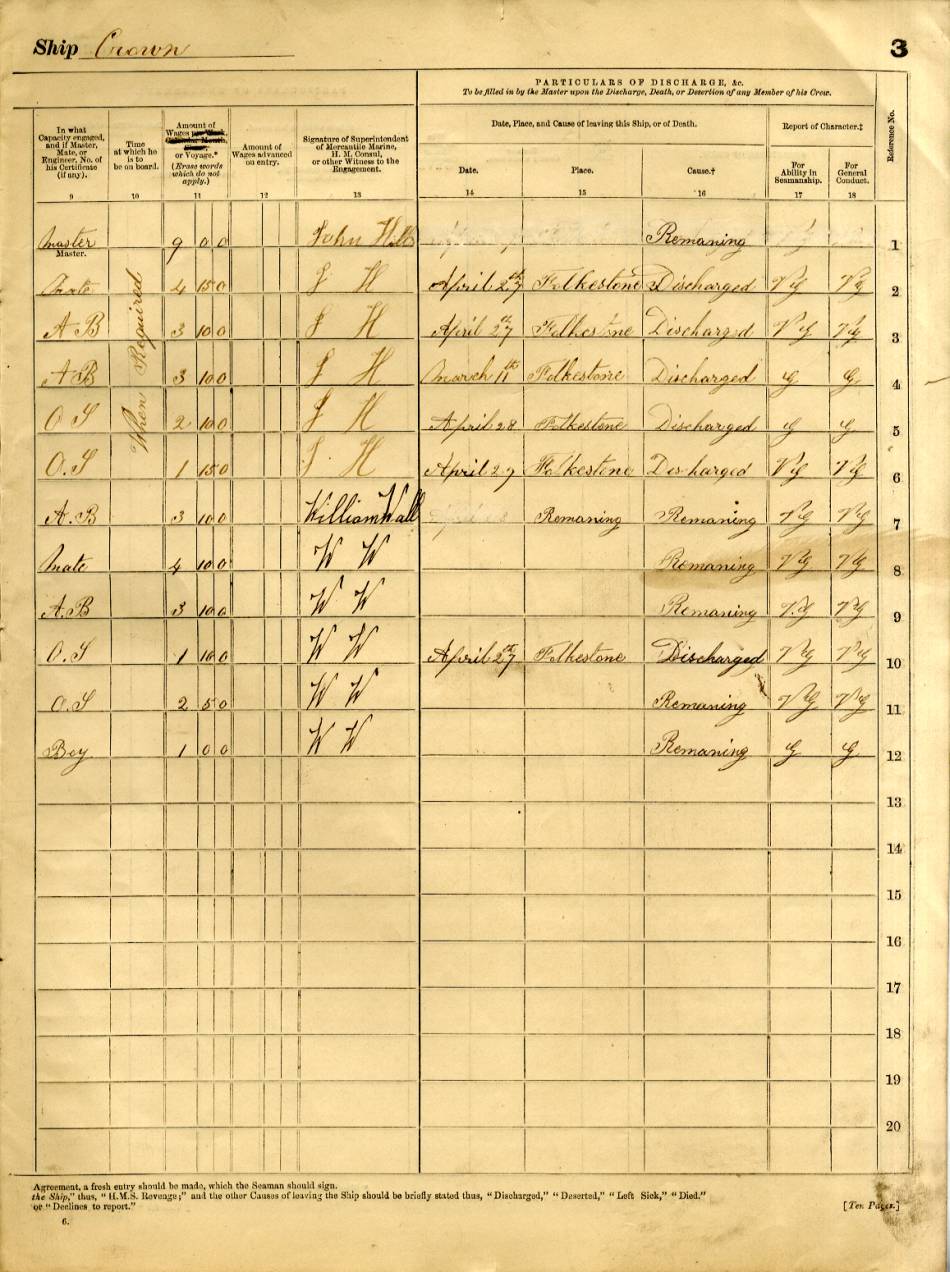 Ship Crown 3
PARTICULARS OF DISCHARGE, &c.
To be filled in by the Master upon the Discharge, Death, or Desertion of any Member of his Crew.
In what Capacity engaged, and if Master, Mate, or Engineer, No. of his Certificate (if any).
Time at which he is to be on board.
Amount of Wages per Week, Calendar Month, Share, or Voyage.* (Erase words which do not apply.)
Amount of Wages advanced on entry.
Signature of Superintendent of Mercantile Marine, H. M. Consul, or other Witness to the Engagement.
Date, Place, and Cause of leaving this Ship, or of Death.
Report of Character.‡
Reference No.
Date. Place. Cause.† For Ability in Seamanship. For General Conduct.
9 10 11 12 13 14 15 16 17 18
When Required
Master 9 0 0 John Hills Remaning 1
Master.
Mate 4 15 0 J H April 27th Folkestone Discharged V G V G 2
A B 3 10 0 J H April 27th Folkestone Discharged V G V G 3
A B 3 10 0 J H March 11th Folkestone Discharged G G 4
O S 2 10 0 J H April 28 Folkestone Discharged G G 5
O.S 1 15 0 J. H April 29 Folkestone Discharged V G V G 6
A.B 3 10 0 William Wall Remaning Remaning V G V G 7
Mate 4 10 0 W W Remaning V G V G 8
A.B 3 10 0 W W Remaning V.G V G 9
O.S 1 10 0 W W April 27th Folkestone Discharged V G V G 10
O.S 2 5 0 W W Remaning V G V G 11
Boy 1 0 0 W W Remaning G G 12
13
14
15
16
17
18
19
20
Agreement, a fresh entry should be made, which the Seaman should sign.
the Ship," thus, "H.M.S. Revenge;" and the other Causes of leaving the Ship should be briefly stated thus, "Discharged," "Deserted," "Left Sick," "Died."
or "Declines to report." [Ten Pages.]
6.